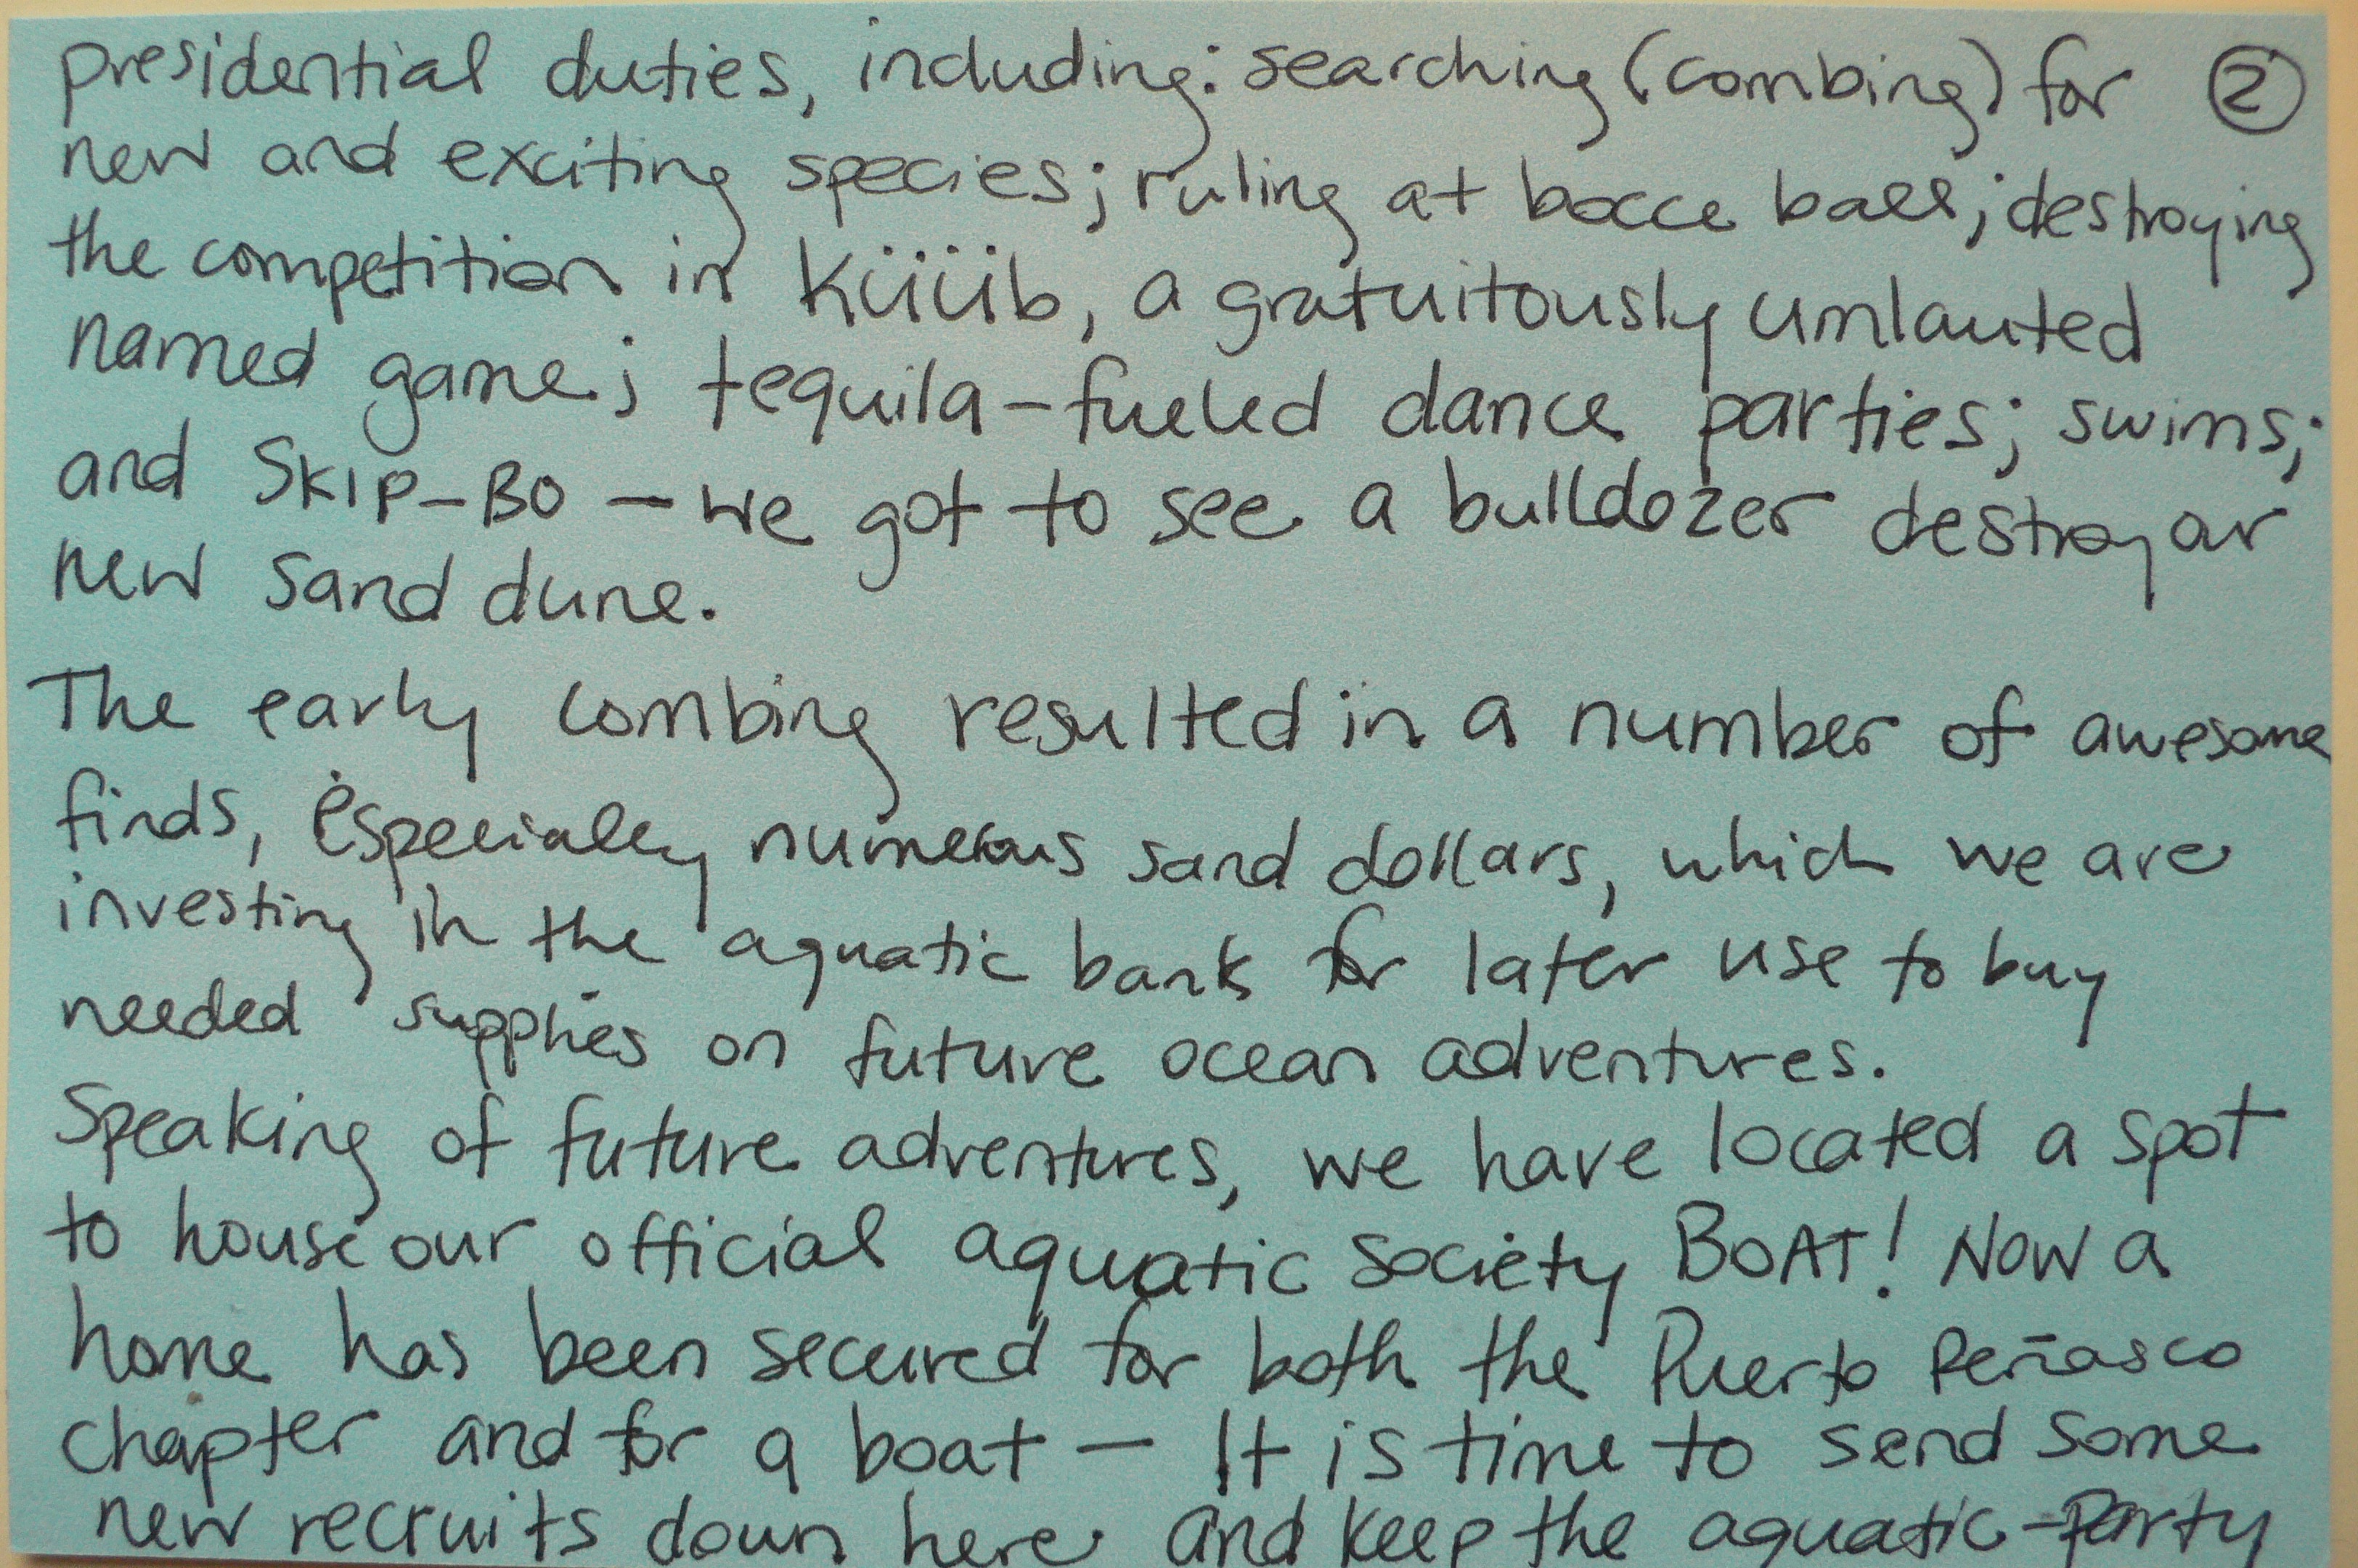 presidential duties, including: searching (combing) for ②
new and exciting species; ruling at bocce ball; destroying
the competition in Küüüb, a gratuitously umlauted
named game; tequila-fueled dance parties; swims;
and SKIP-BO — we got to see a bulldozer destroy our
new sand dune.
The early combing resulted in a number of awesome
finds, especially numerous sand dollars, which we are
investing in the aquatic bank for later use to buy
needed supplies on future ocean adventures.
Speaking of future adventures, we have located a spot
to house our official aquatic society BOAT! Now a
home has been secured for both the Puerto Peñasco
chapter and for a boat — It is time to send some
new recruits down here and keep the aquatic-party